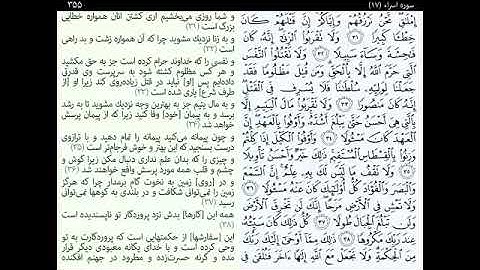 سوره اسراء (۱۷)
۳۵۵
إِمْلَاقٍ نَحْنُ نَرْزُقُهُمْ وَإِيَّاكُمْ إِنَّ قَتْلَهُمْ كَانَ
خِطْئًا كَبِيرًا ﴿۳۱﴾ وَلَا تَقْرَبُوا الزِّنَى إِنَّهُ كَانَ
فَاحِشَةً وَسَاءَ سَبِيلًا ﴿۳۲﴾ وَلَا تَقْتُلُوا النَّفْسَ
الَّتِي حَرَّمَ اللَّهُ إِلَّا بِالْحَقِّ وَمَنْ قُتِلَ مَظْلُومًا فَقَدْ
جَعَلْنَا لِوَلِيِّهِ سُلْطَانًا فَلَا يُسْرِفْ فِي الْقَتْلِ
إِنَّهُ كَانَ مَنْصُورًا ﴿۳۳﴾ وَلَا تَقْرَبُوا مَالَ الْيَتِيمِ إِلَّا
بِالَّتِي هِيَ أَحْسَنُ حَتَّى يَبْلُغَ أَشُدَّهُ وَأَوْفُوا بِالْعَهْدِ إِنَّ
الْعَهْدَ كَانَ مَسْئُولًا ﴿۳۴﴾ وَأَوْفُوا الْكَيْلَ إِذَا كِلْتُمْ
وَزِنُوا بِالْقِسْطَاسِ الْمُسْتَقِيمِ ذَلِكَ خَيْرٌ وَأَحْسَنُ تَأْوِيلًا
﴿۳۵﴾ وَلَا تَقْفُ مَا لَيْسَ لَكَ بِهِ عِلْمٌ إِنَّ السَّمْعَ
وَالْبَصَرَ وَالْفُؤَادَ كُلُّ أُولَئِكَ كَانَ عَنْهُ مَسْئُولًا
﴿۳۶﴾ وَلَا تَمْشِ فِي الْأَرْضِ مَرَحًا إِنَّكَ لَنْ تَخْرِقَ الْأَرْضَ
وَلَنْ تَبْلُغَ الْجِبَالَ طُولًا ﴿۳۷﴾ كُلُّ ذَلِكَ كَانَ سَيِّئُهُ
عِنْدَ رَبِّكَ مَكْرُوهًا ﴿۳۸﴾ ذَلِكَ مِمَّا أَوْحَى إِلَيْكَ رَبُّكَ
مِنَ الْحِكْمَةِ وَلَا تَجْعَلْ مَعَ اللَّهِ إِلَهًا آخَرَ فَتُلْقَى فِي
و شما روزی می‌بخشیم آری کشتن آنان همواره خطایی
بزرگ است (۳۱)
و به زنا نزدیک مشوید چرا که آن همواره زشت و بد راهی
است (۳۲)
و نفسی را که خداوند حرام کرده است جز به حق مکشید
و هر کس مظلوم کشته شود به سرپرست وی قدرتی
داده‌ایم پس [او] نباید در قتل زیاده‌روی کند زیرا او [از
طرف شرع] یاری شده است (۳۳)
و به مال یتیم جز به بهترین وجه نزدیک مشوید تا به رشد
برسد و به پیمان [خود] وفا کنید زیرا که از پیمان پرسش
خواهد شد (۳۴)
و چون پیمانه می‌کنید پیمانه را تمام دهید و با ترازوی
درست بسنجید که این بهتر و خوش فرجام‌تر است (۳۵)
و چیزی را که بدان علم نداری دنبال مکن زیرا گوش و
چشم و قلب همه مورد پرسش واقع خواهند شد (۳۶)
و در [روی] زمین به نخوت گام برمدار چرا که هرگز
زمین را نمی‌توانی شکافت و در بلندی به کوهها نمی‌توانی
رسید (۳۷)
همه این [کارها] بدش نزد پروردگار تو ناپسندیده است
(۳۸)
این [سفارشها] از حکمتهایی است که پروردگارت به تو
وحی کرده است و با خدای یگانه معبودی دیگر قرار
مده و گرنه حسرت‌زده و مطرود در جهنم افکنده